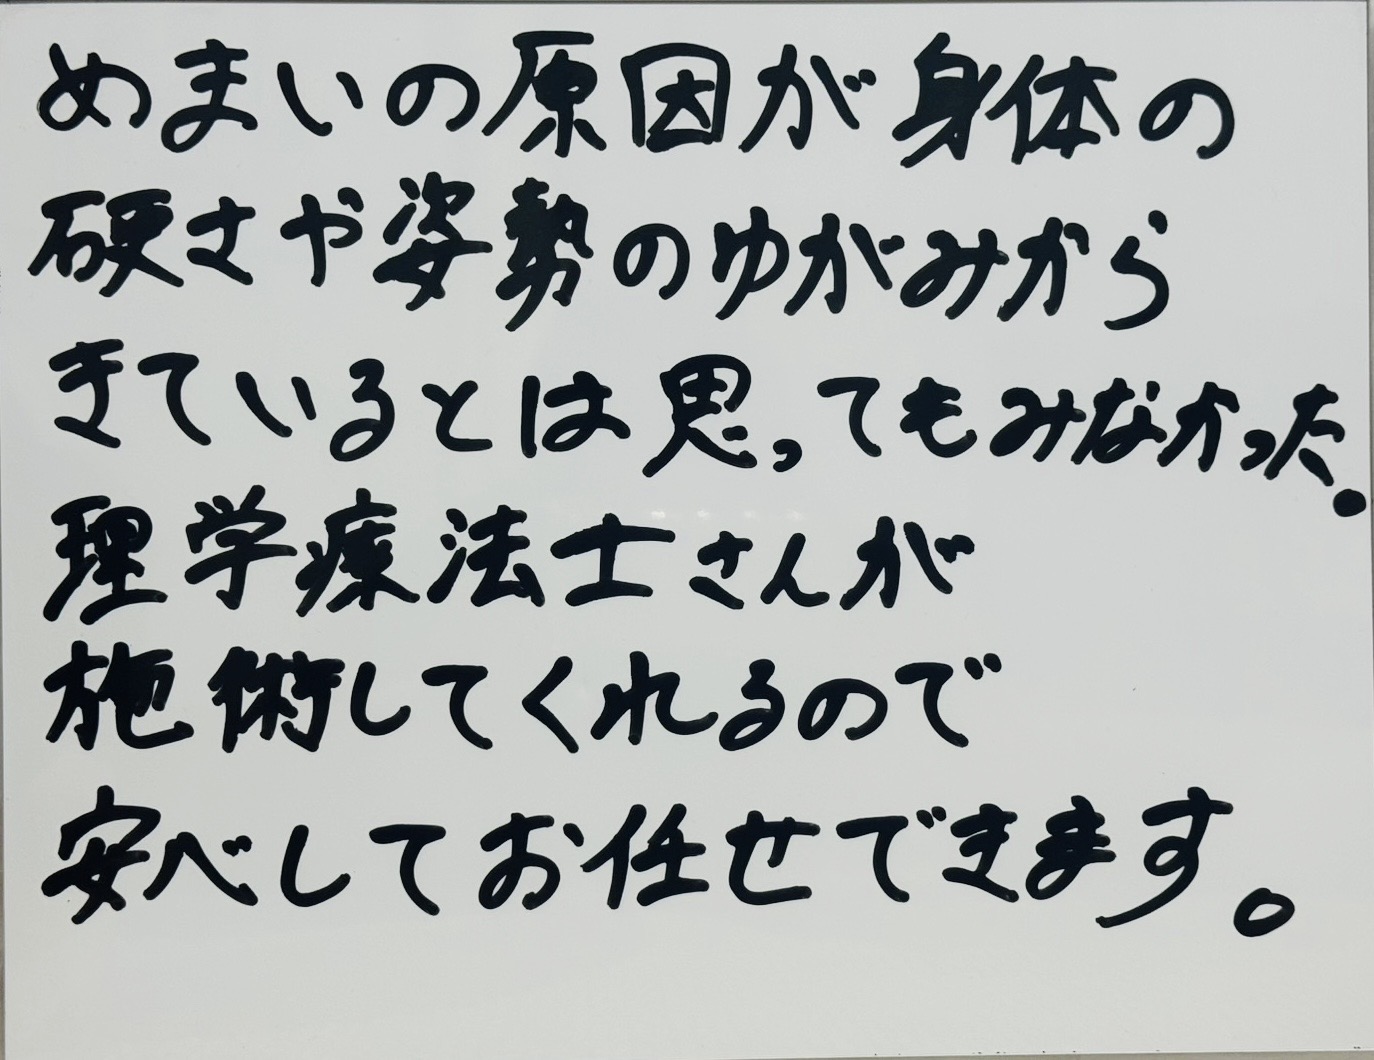 めまいの原因が身体の
硬さや姿勢のゆがみから
きているとは思ってもみなかった。
理学療法士さんが
施術してくれるので
安心してお任せできます。